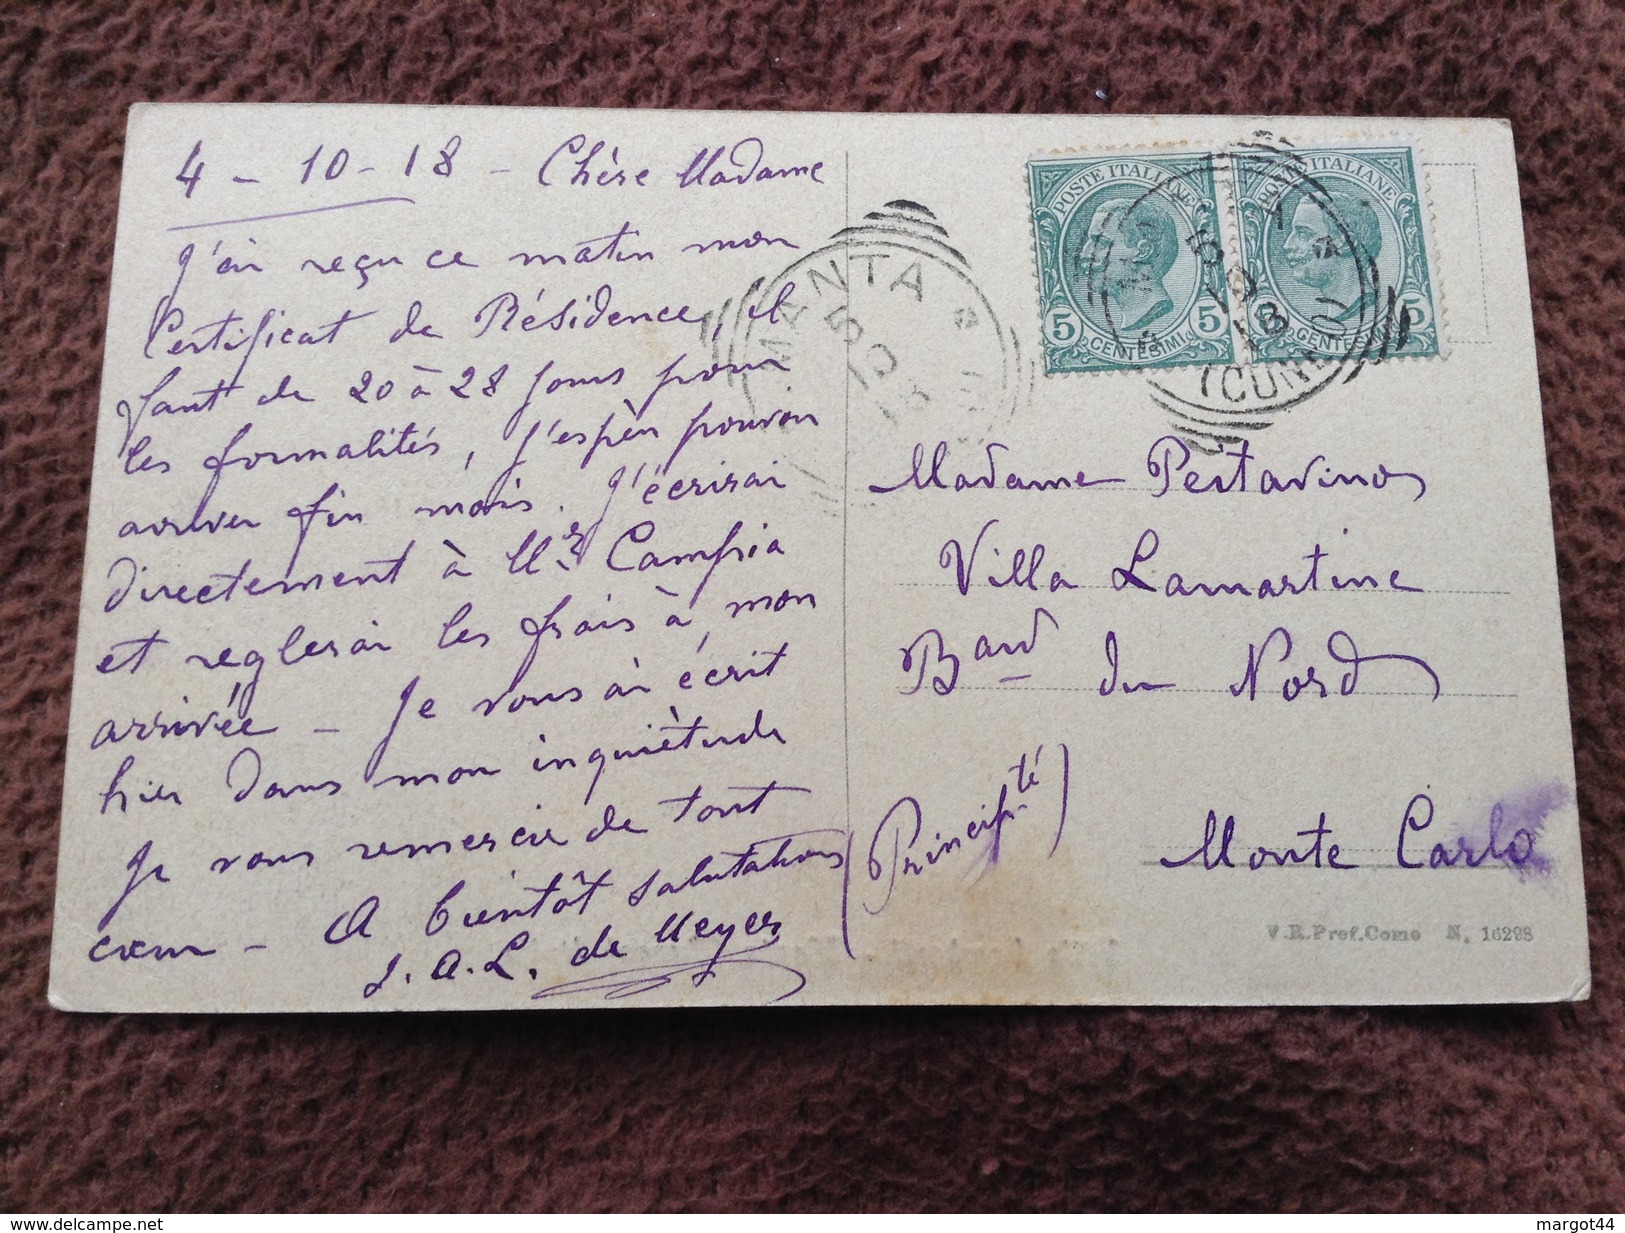 4 - 10 - 18 - Chère Madame
J'ai reçu ce matin mon
Certificat de Résidence, il
faut de 20 à 28 jours pour
les formalités, j'espère pouvoir
arriver fin mois. J'écrirai
directement à Mr Campia
et reglerai les frais à mon
arrivée - Je vous ai écrit
hier dans mon inquiètude
Je vous remercie de tout
cœur - A bientôt salutations
J. A. L. de Meyer
POSTE ITALIANE
5 CENTESIMI 5
POSTE ITALIANE
5 CENTESIMI 5
MANTA
5 10 18
5 10 18
(CUNEO)
Madame Pestarino
Villa Lamartine
Bard du Nord
(Principté)
Monte Carlo
V.R.Pref.Como N. 16298
http://www.delcampe.net
margot44